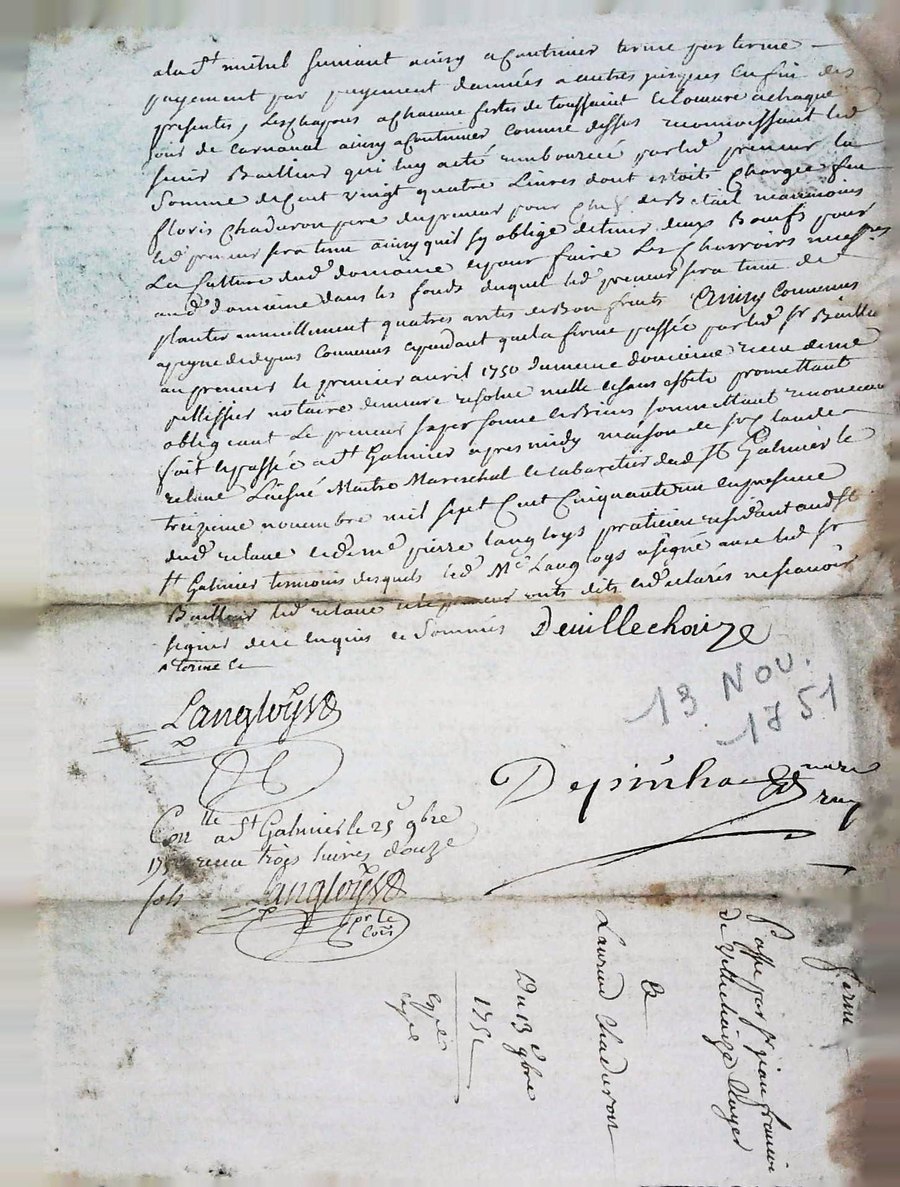 alad^t mitrel suivant ainsy acontinuer terme par terme
payement par payement dannées a autres jusques en fin des
presentes, Les chapons a chacune festes de toussaint celouure achaque
jour de carnaval ainsy acontinuer comme dessus reconnoissant led
sieur Bailleur qui luy a eté rembourcé par led preneur la
Somme de cent vingt quatre Livres dont estoit chargée feu
floris chaduron pere du preneur pour de Betail
led preneur sera tenu ainsy quil sy oblige detenir deux Boeufs pour
La Culture dud domaine epour faire Les charroirs necess^res
aud domaine dans les fonds duquel led preneur sera tenu de
planter annuellement quatres antes de Bon fruits Ainsy Convenus
Convenus cependant que la ferme passée par led s^r Bailleur
au preneur le premier avril 1750 du meme domaine receu de me
pellissier notaire demeure resolue nulle esans effets promettant
obligeant Le preneur sa personne esBiens soumettant renonceant
fait epassé a S^t Galmier apres midy maison de s^r Claude
relave Laisné Maitre Mareschal le cabaretier dud S^t Galmier le
treizieme novembre mil sept Cent Cinquante un en presence
dud relave et de me pierre langloys praticien residant aud
S^t Galmier temoins desquels led M^e Langloys a signé avec led s^r
Bailleur led relave et le preneur ont dits et declarés ne scavoir
signer de ce enquis et Sommés Deuillechaize
a terme ce
Langloys
13 NOV.
1751
Depinhac no^re
roy
Con^lle a S^t Galmier le 25 9bre
1751 receu trois livres douze
sols Langloys
pr le
Co^is
ferme
Passé par s^r jean francois
de Villechaize Ecuyer
A
Laurend Chaduron
Du 13^e 9bre
1751
Expé